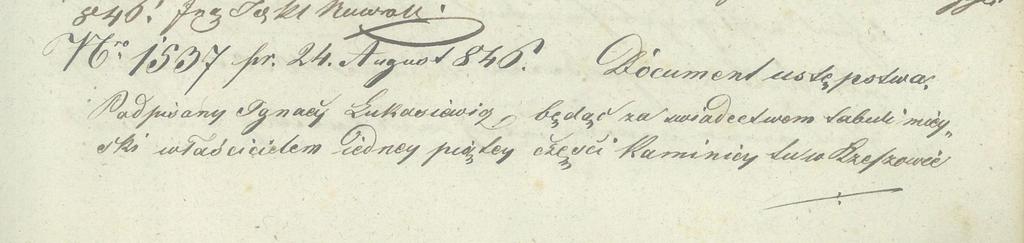 846. Ing Tekt Nawrat.
Nro 1537 pr. 24. August 846. Dócument ustępstwa.
Podpisany Ignacy Łukasiewicz, będąc za swiadectwem tabuli miey„
ski właścicielem iedney piątey części Kamienicy tu w Rzeszowie